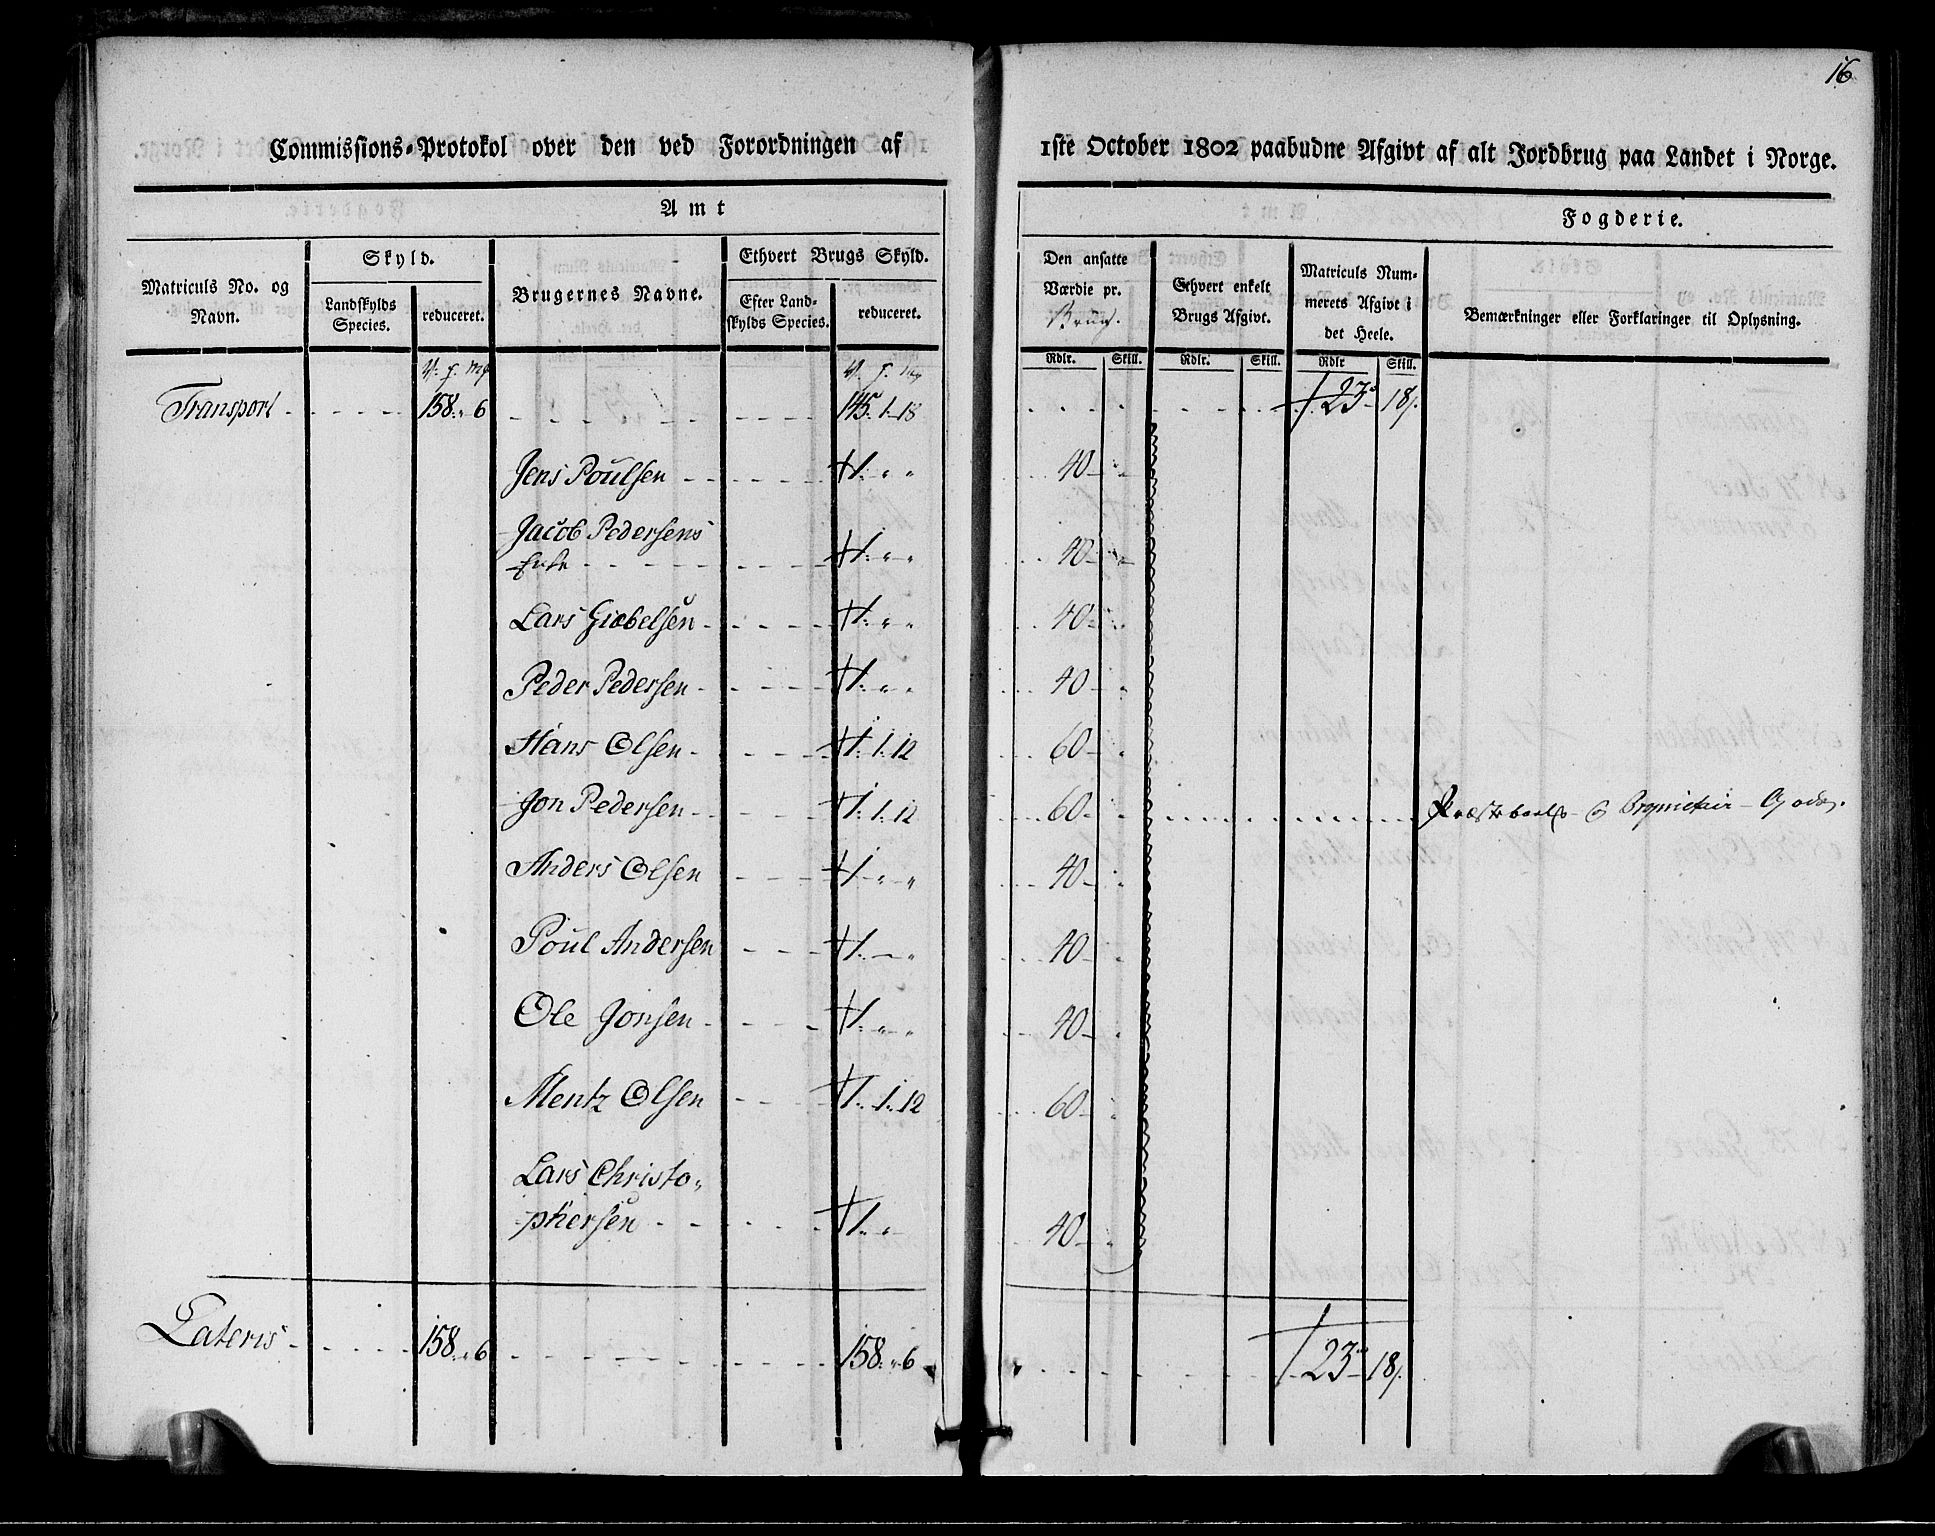 16
Commissions-Protokol over den ved Forordningen af 1ste October 1802 paabudne Afgivt af alt Jordbrug paa Landet i Norge.
Amt Fogderie.
Matriculs No. og Navn.
Skyld.
Landskylds Species.
reduceret.
Brugernes Navne.
Ethvert Brugs Skyld.
Efter Landskylds Species.
reduceret.
Den ansatte Værdie pr. Brug.
Ethvert enkelt Brugs Afgivt.
Matriculs Nummerets Afgivt i det Heele.
Bemærkninger eller Forklaringer til Oplysning.
Rdlr. Skill. Rdlr. Skill. Rdlr Skill.
Transport 158 " 6 145. 1. 18 123 18
Jens Poulsen 1. " " 40
Jacob Pedersens
Enke 1. " " 40
Lars Giæbelsen 1. " " 40
Peder Pedersen 1. " " 40
Hans Olsen 1. 1. 12 60
Jon Pedersen 1. 1. 12 60
Anders Olsen 1. " " 40
Poul Andersen 1. " 40
Ole Jonsen 1. " " 40
Mentz Olsen 1. 1. 12 60
Lars Christo-
phersen 1. " 40
Lateris 158. " 6 158. " 6 123 18